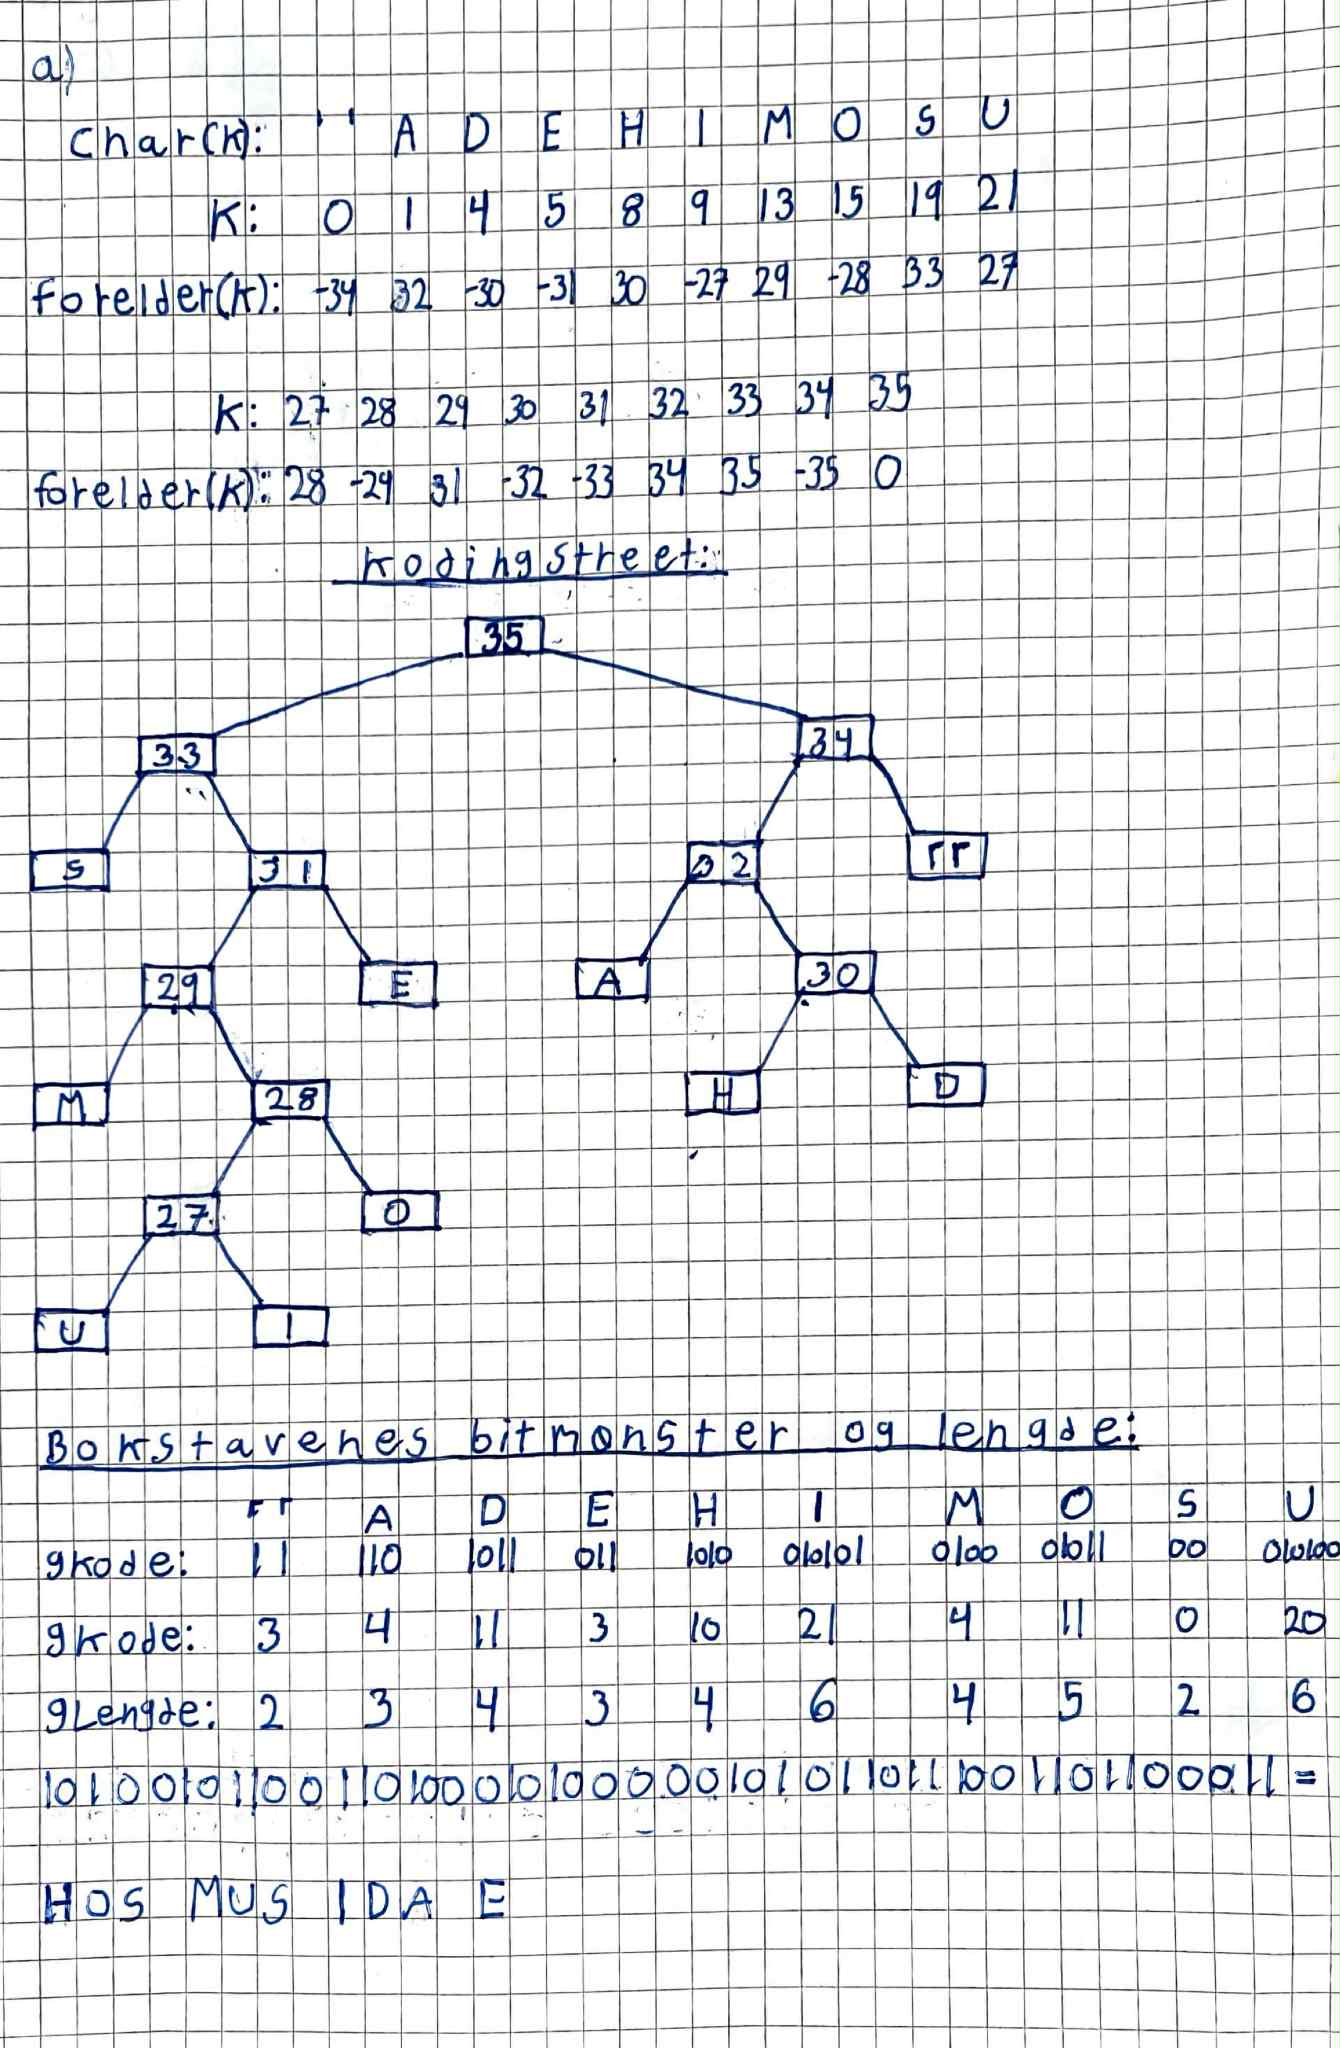 a)
Char(K): ' ' A D E H I M O S U
K: 0 1 4 5 8 9 13 15 19 21
forelder(K): -34 32 -30 -31 30 -27 29 -28 33 27
K: 27 28 29 30 31 32 33 34 35
forelder(K): 28 -29 31 -32 -33 34 35 -35 0
Kodingstreet:
35
33 34
S 31 32 ' '
29 E A 30
M 28 H D
27 O
U I
Bokstavenes bitmønster og lengde:
' ' A D E H I M O S U
gkode: 11 110 1011 011 1010 010101 0100 01011 00 010100
gkode: 3 4 11 3 10 21 4 11 0 20
gLengde: 2 3 4 3 4 6 4 5 2 6
101001011001101000101000001010110111001101100011 =
HOS MUS IDA E